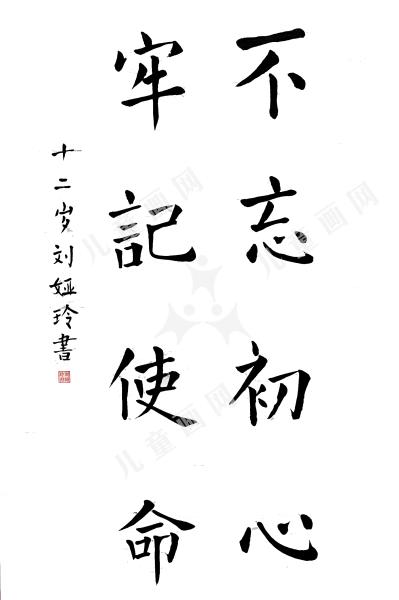 不忘初心
牢記使命
十二岁刘娅玲書
儿童画网
儿童画网
儿童画网